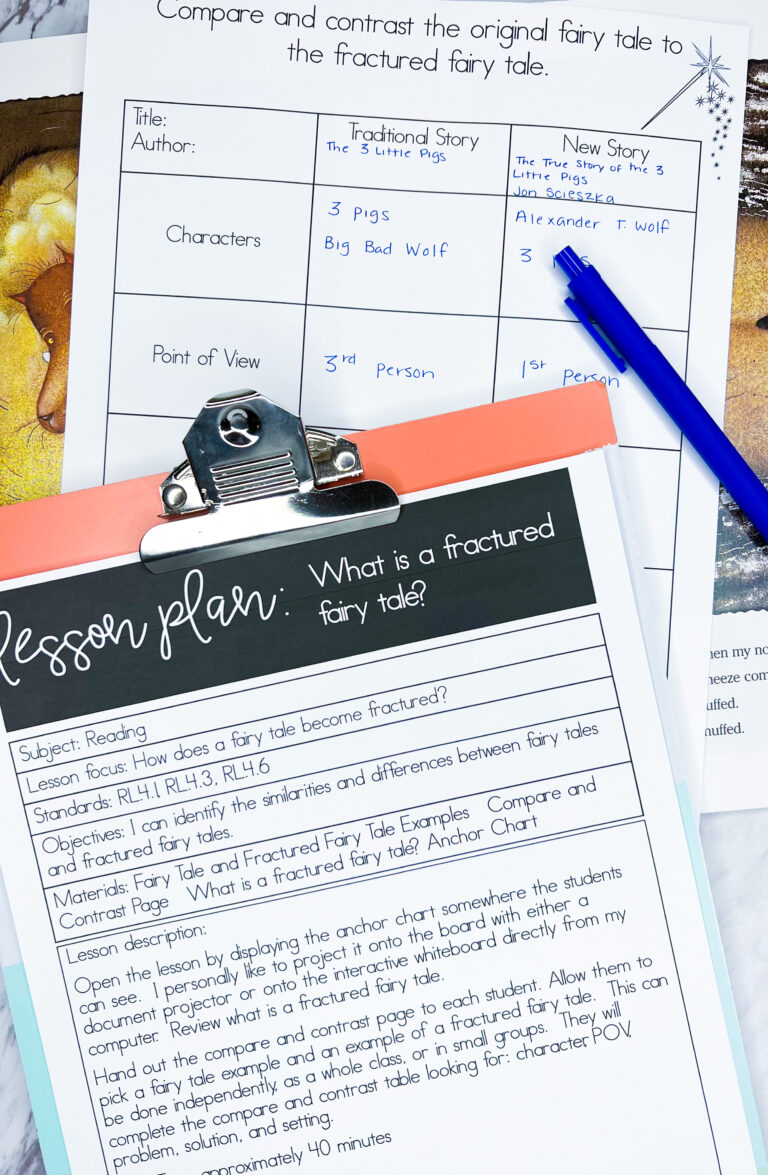 Compare and contrast the original fairy tale to
the fractured fairy tale.
Title:
Author:
Traditional Story
The 3 Little Pigs
New Story
The True Story of the 3
Little Pigs
Jon Scieszka
Characters
3 Pigs
Big Bad Wolf
Alexander T. Wolf
3
Point of View
3rd Person
1st Person
lesson plan:
What is a fractured
fairy tale?
Subject: Reading
Lesson focus: How does a fairy tale become fractured?
Standards: RL.4.1 RL.4.3, RL.4.6
Objectives: I can identify the similarities and differences between fairy tales
and fractured fairy tales.
Materials: Fairy Tale and Fractured Fairy Tale Examples Compare and
Contrast Page What is a fractured fairy tale? Anchor Chart
Lesson description:
Open the lesson by displaying the anchor chart somewhere the students
can see. I personally like to project it onto the board with either a
document projector or onto the interactive whiteboard directly from my
computer. Review what is a fractured fairy tale.
Hand out the compare and contrast page to each student. Allow them to
pick a fairy tale example and an example of a fractured fairy tale. This can
be done independently, as a whole class, or in small groups. They will
complete the compare and contrast table looking for: character POV,
problem, solution, and setting.
approximately 40 minutes
my no
com